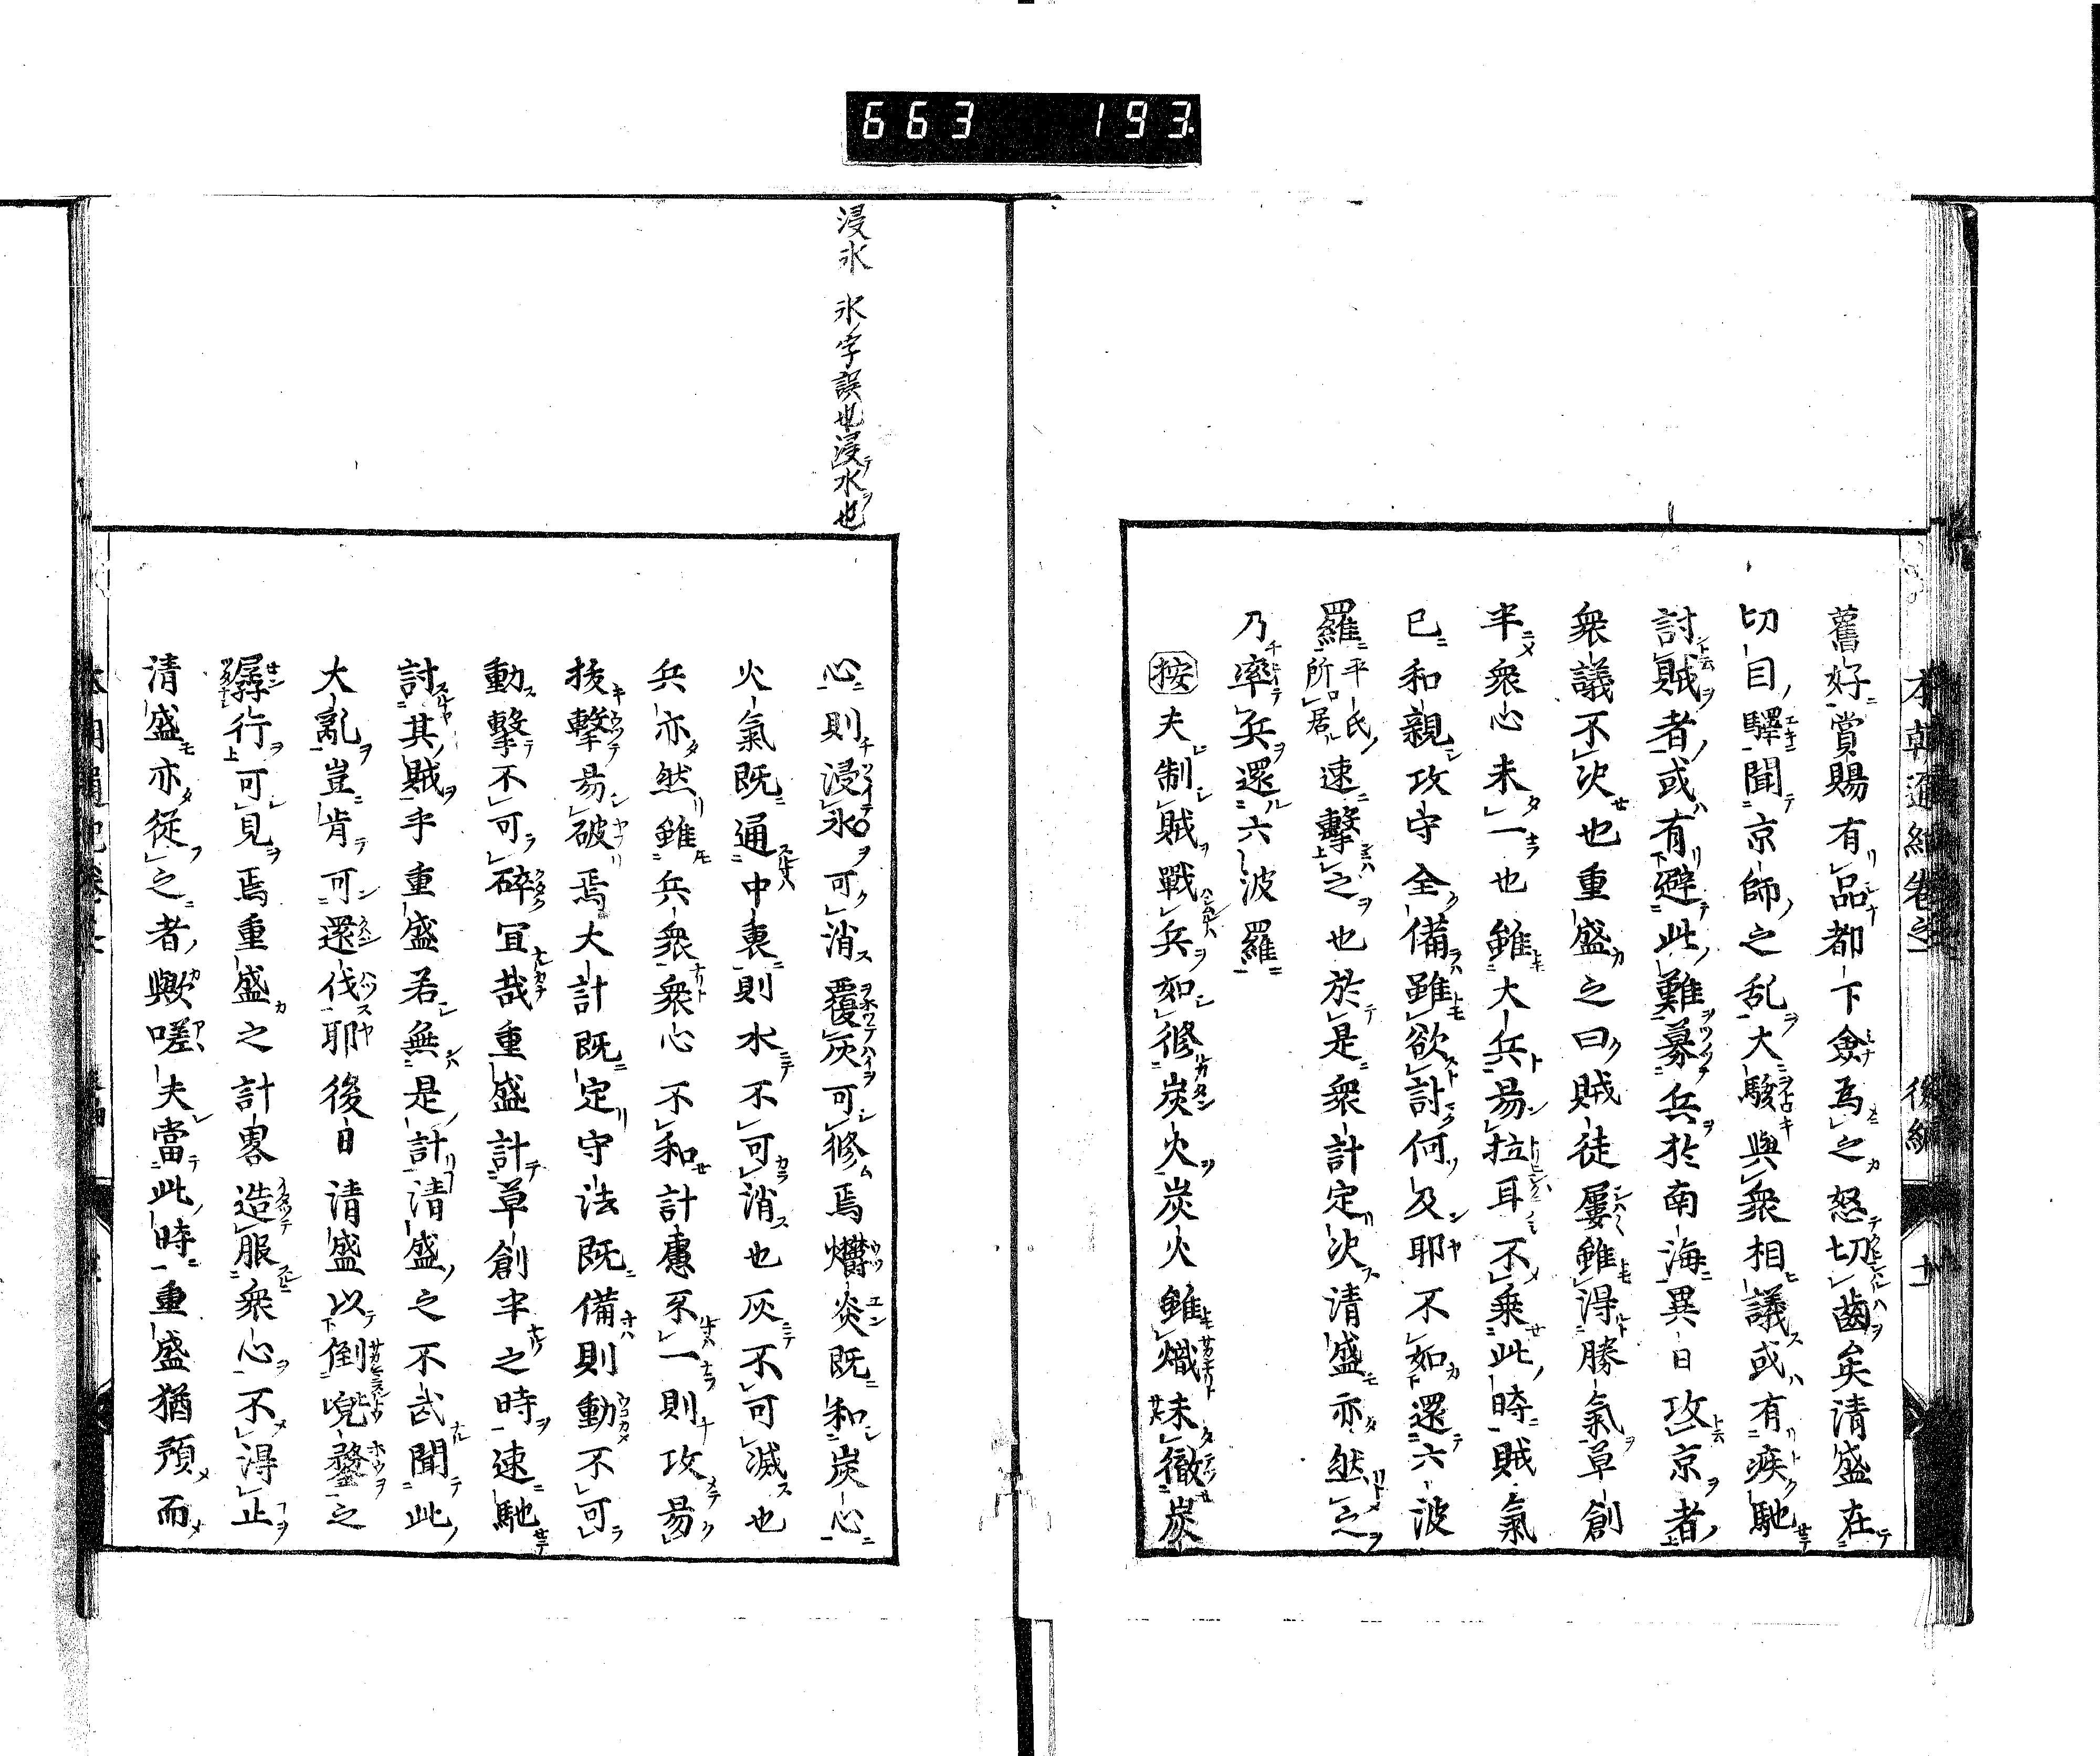 663 193
本朝通紀卷之 後編 十
舊好賞賜有品都下僉為之怒切齒矣清盛在
切目驛聞京師之乱大駭與衆相議或有疾馳
討賊者或有避此難募兵於南海異日攻京者
衆議不决也重盛之曰賊徒屢雖得勝氣草創
半衆心未一也雖大兵易拉耳不乗此時賊氣
已和親攻守全備雖欲計何及耶不如還六波
羅平氏所居速擊之也於是衆計定决清盛亦然之
乃率兵還六波羅
按夫制賊戰兵如修炭火炭火雖熾未徹炭
浸氷 氷字誤也浸水也
心則浸氷可消覆灰可修焉爩炎既和炭心
火氣既通中裏則水不可消也灰不可滅也
兵亦然雖兵衆衆心不和計慮不一則攻易
拔擊易破焉大計既定守法既備則動不可
動擊不可碎冝哉重盛計草創半之時速馳
討其賊乎重盛若無是計清盛之不武聞此
大亂豈肯可還伐耶後日清盛以倒兜鍪之
孱行可見焉重盛之計畧造服衆心不得止
清盛亦從之者歟嗟夫當此時重盛猶預而